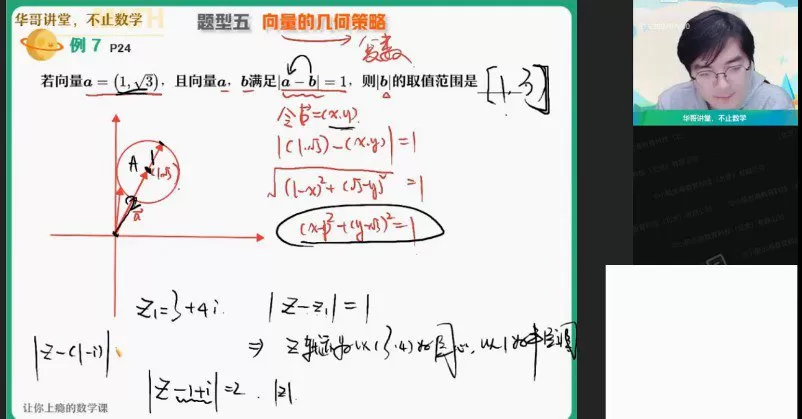 华哥讲堂，不止数学
题型五 向量的几何策略
复数
例 7 P24
若向量a=(1,√3)，且向量a，b满足|a−b|=1，则|b|的取值范围是 [1,3]
令b=(x,y)
|(1,√3)−(x,y)|=1
√(1−x)²+(√3−y)² =1
(x−1)²+(y−√3)²=1
A
1
(1,√3)
2
a
华哥讲堂，不止数学
Z₁=3+4i |Z−Z₁|=1
|Z−(1−i)| ⇒ Z轨迹为以(3,4)为圆心，以1为半径圆
|Z−1+i|=2. |Z|.
让你上瘾的数学课